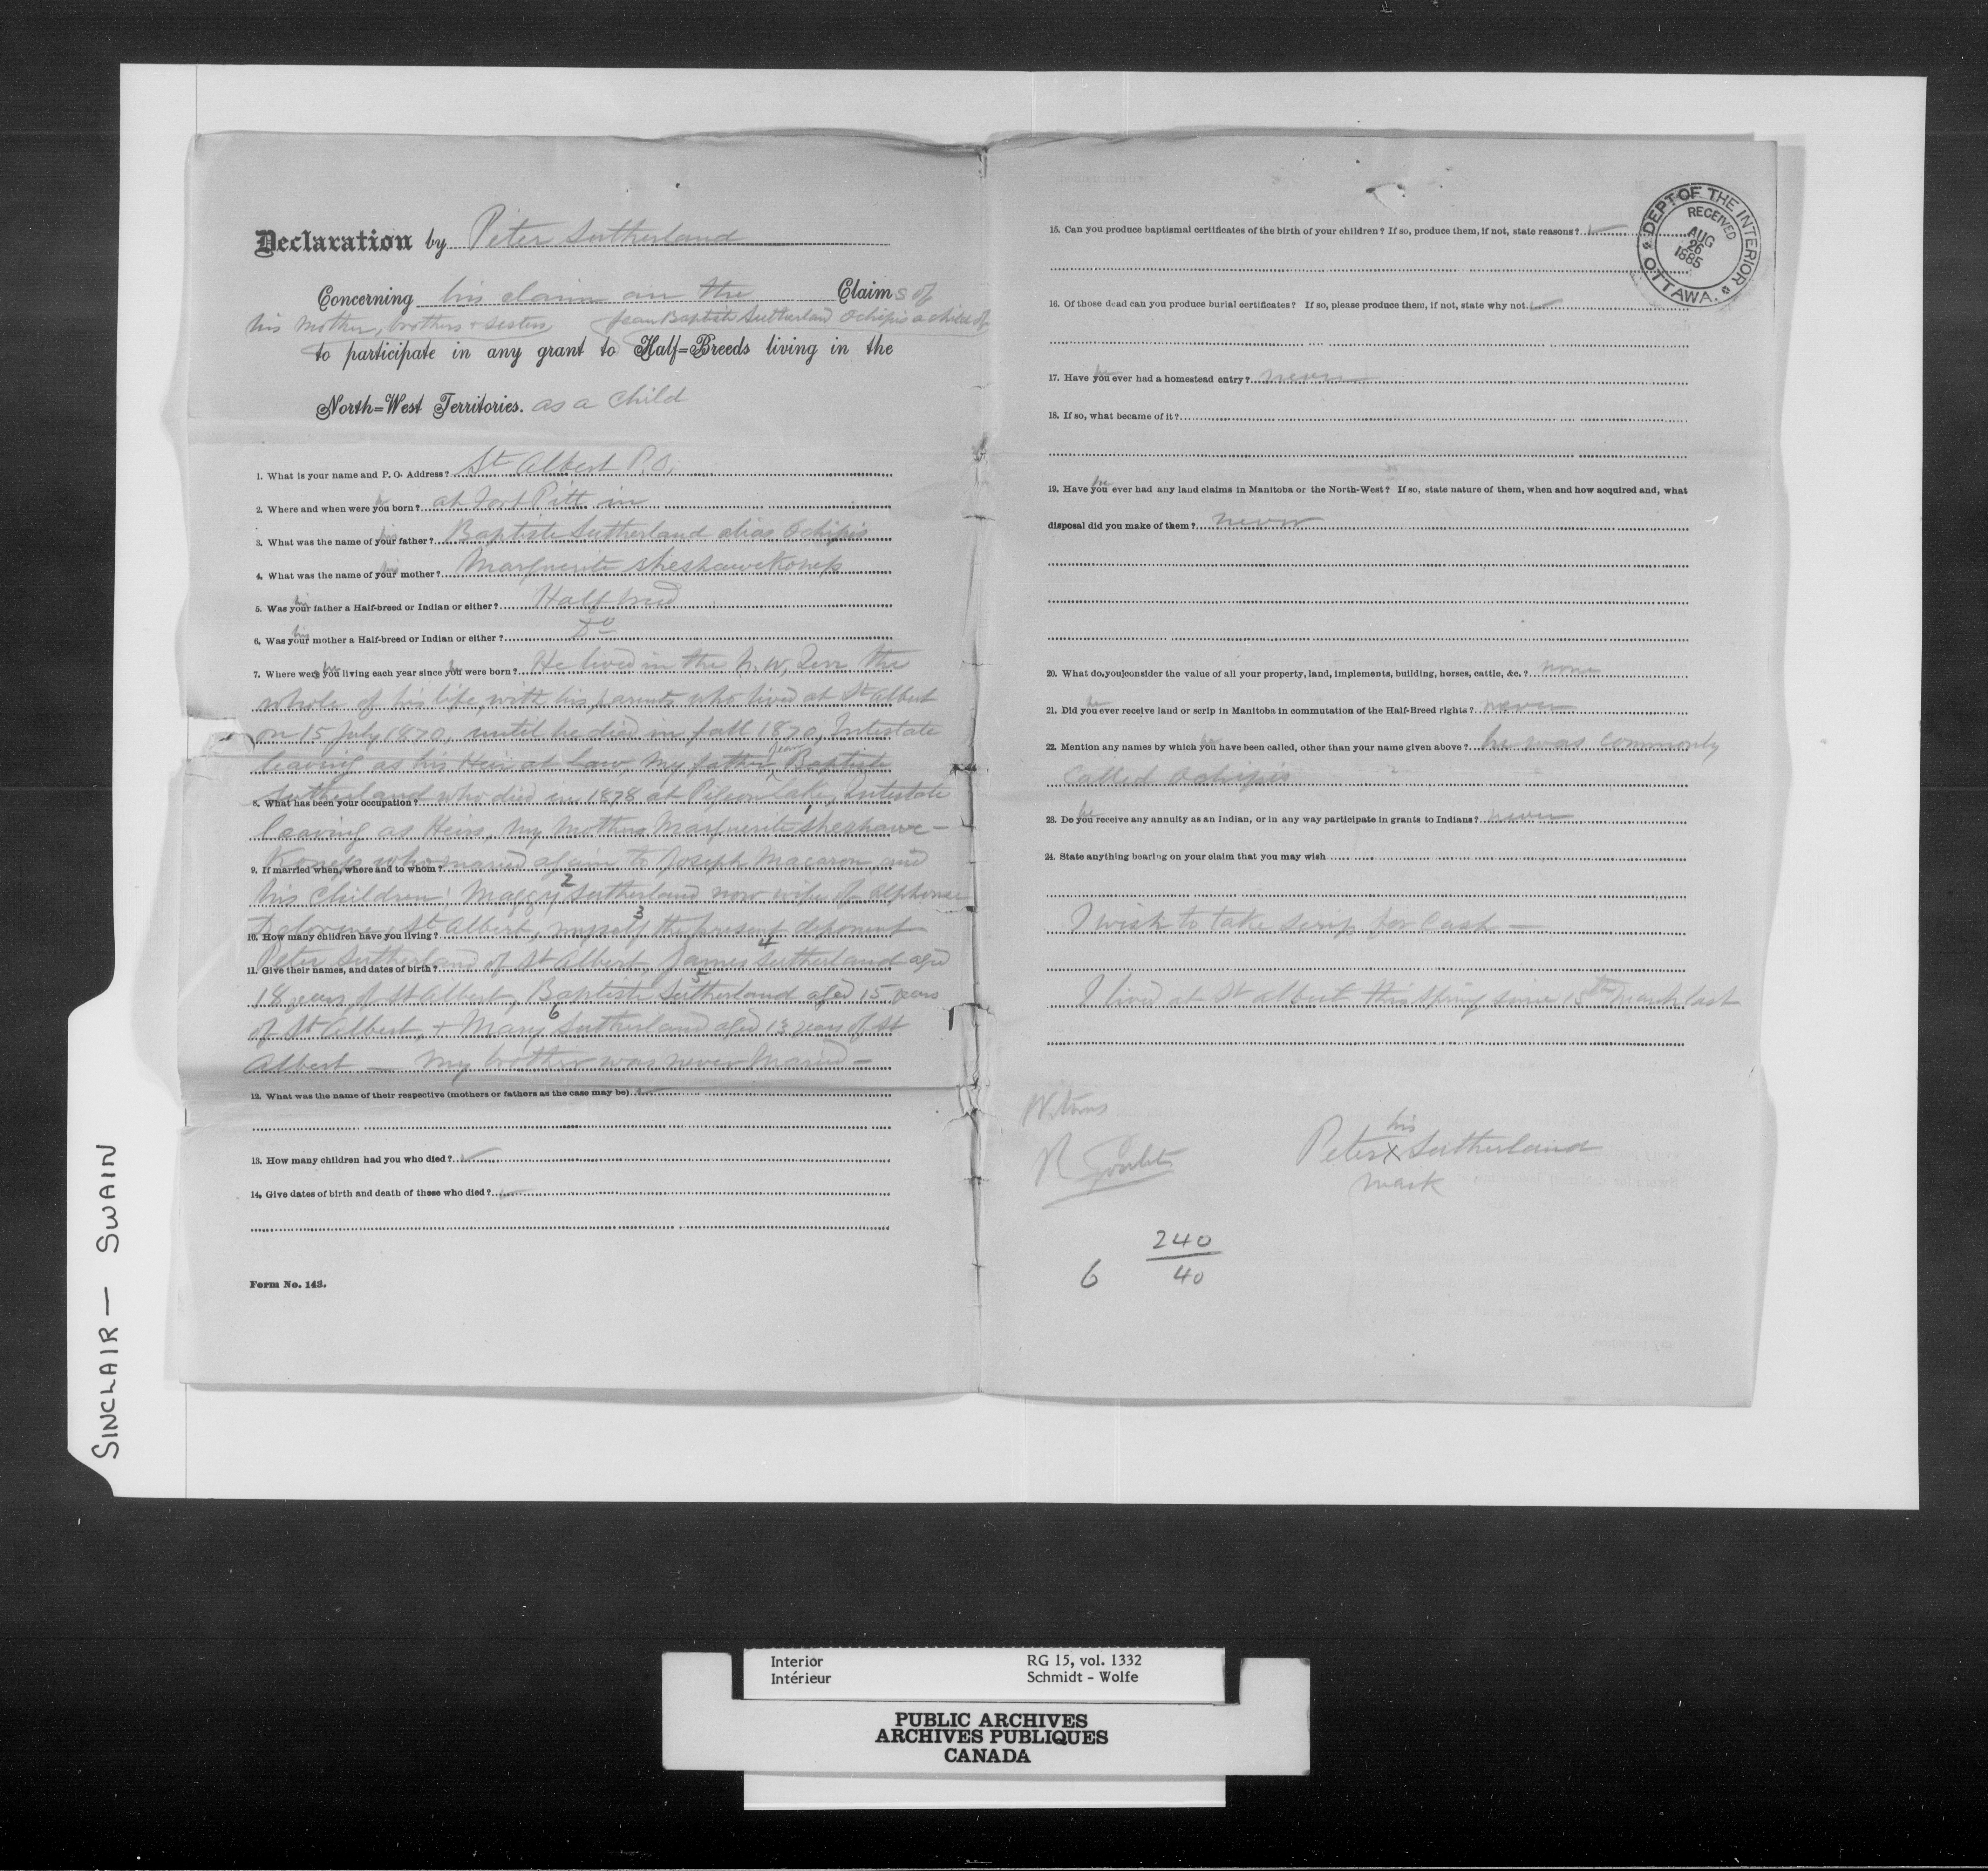 Declaration by Peter Sutherland
Concerning his claim on the Claims of
his mother, brothers & sisters Jean Baptiste Sutherland Ochipis a child of
to participate in any grant to Half=Breeds living in the
North=West Territories. as a child
1. What is your name and P. O. Address? St Albert P.O.
2. Where and when were you born? at Fort Pitt in
3. What was the name of your his father? Baptiste Sutherland alias Ochipis
4. What was the name of your his mother? Marguerite
5. Was your his father a Half-breed or Indian or either? Half breed
6. Was your his mother a Half-breed or Indian or either? Do
7. Where were you he living each year since you he were born? He lived in the N. W. Terr the
whole of his life, with his parents who lived at St Albert
on 15 July 1870, until he died in fall 1870, Intestate
leaving as his Heir at Law, my father Jean Baptiste
Sutherland who died in 1878 at Pigeon Lake, Intestate
8. What has been your occupation?
leaving as Heirs, my Mother 1 Marguerite
who married again to Joseph Macaron and
9. If married when, where and to whom?
his children: Maggy 2 Sutherland now wife of Alphonse
St Albert, myself 3 the present deponent
10. How many children have you living?
Peter Sutherland of St Albert, James 4 Sutherland aged
11. Give their names, and dates of birth?
18 years of St Albert, Baptiste 5 Sutherland aged 15 years
of St Albert, & Mary 6 Sutherland aged 13 years of St
Albert — My brother was never Married —
12. What was the name of their respective (mothers or fathers as the case may be)
13. How many children had you who died?
14. Give dates of birth and death of those who died?
Form No. 143.
15. Can you produce baptismal certificates of the birth of your children? If so, produce them, if not, state reasons?
16. Of those dead can you produce burial certificates? If so, please produce them, if not, state why not.
17. Have you he ever had a homestead entry? never
18. If so, what became of it?
19. Have you he ever had any land claims in Manitoba or the North-West? If so, state nature of them, when and how acquired and, what
disposal did you make of them? never
20. What do you consider the value of all your property, land, implements, building, horses, cattle, &c.? none
21. Did you he ever receive land or scrip in Manitoba in commutation of the Half-Breed rights? never
22. Mention any names by which you he have been called, other than your name given above? he was commonly
called Ochipis
23. Do you he receive any annuity as an Indian, or in any way participate in grants to Indians? never
24. State anything bearing on your claim that you may wish
I wish to take scrip for cash —
I lived at St Albert this spring since 15th March last
Witness
R Goulet
his
Peter X Sutherland
mark
240
6 40
DEPT OF THE INTERIOR
RECEIVED
AUG
26
1885
OTTAWA.
SINCLAIR — SWAIN
Interior RG 15, vol. 1332
Intérieur Schmidt - Wolfe
PUBLIC ARCHIVES
ARCHIVES PUBLIQUES
CANADA